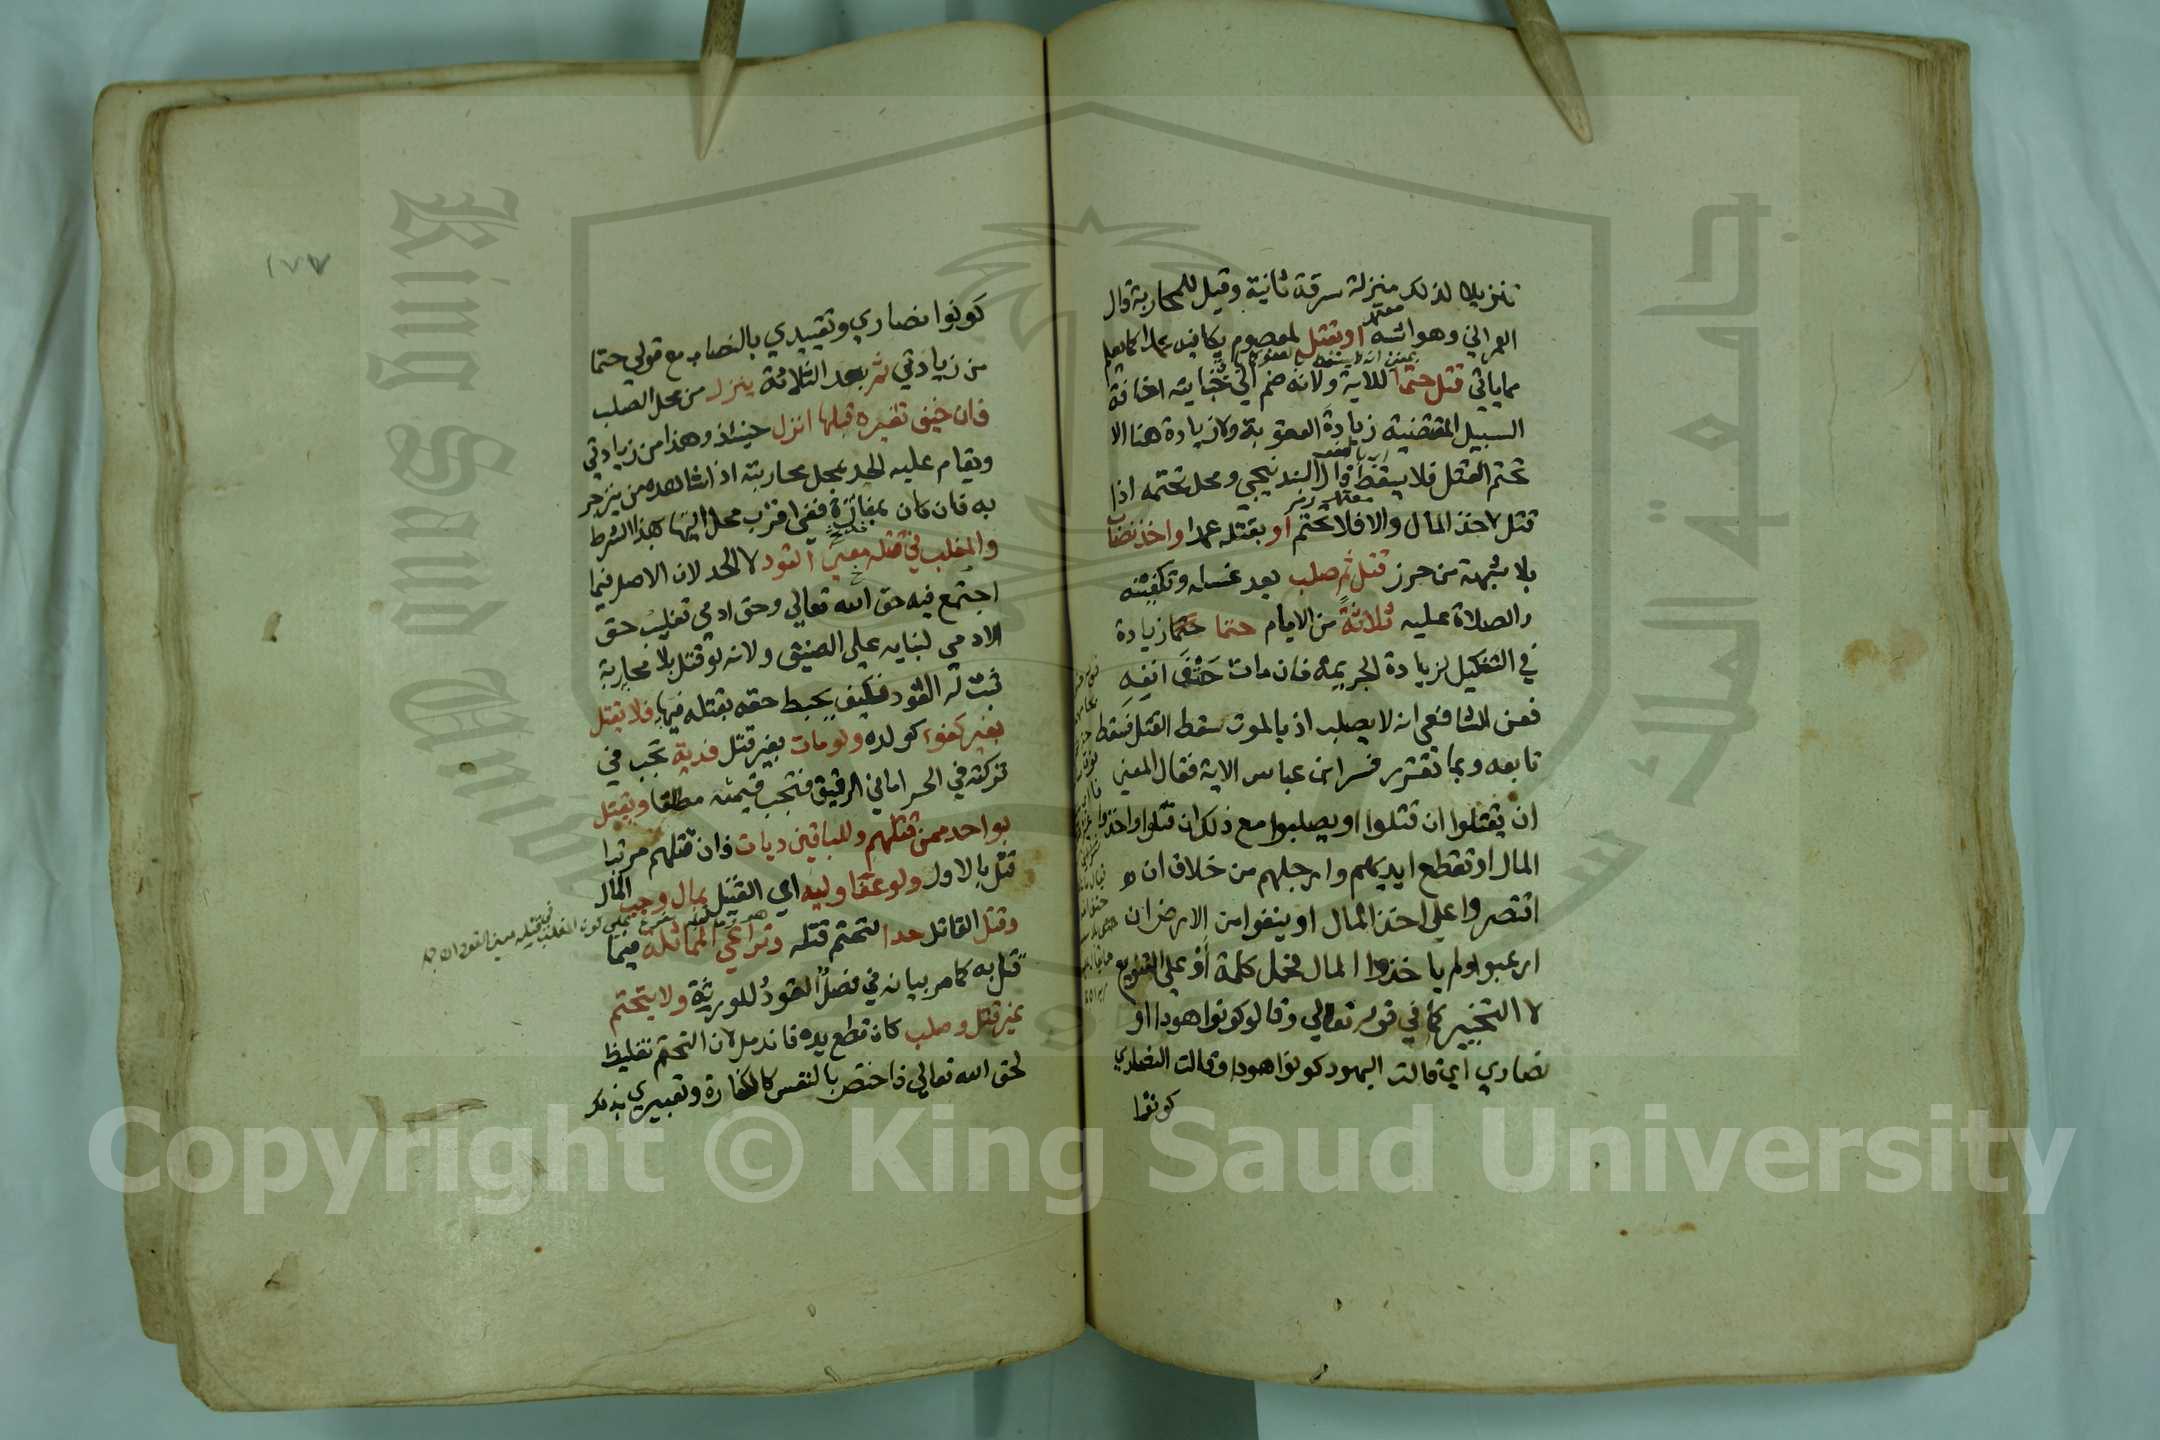 تنزيلا لذلك منزلة سرقة ثانية وقيل للمحاربة قال
العمراني وهو اشبه او بقتل لمعصوم يكافيه عمدا كما يعلم
معتمد
مما ياتي قتل حتما للاية ولانه ضم الى جنايته اخافة
السبيل المقتضية زيادة العقوبة ولا زيادة هنا الا
تحتم القتل فلا يسقط قال البندنيجي ومحل تحتمه اذا
قتل لاخذ المال والا فلا يتحتم او بقتله عمدا واخذ نصاب
بلا شبهة من حرز قتل ثم صلب بعد غسله وتكفينه
والصلاة عليه ثلاثة من الايام حتما زيادة
في التنكيل لزيادة الجريمة فان مات حَتْفَ انفِهِ
فعن الشافعي انه لا يصلب اذ بالموت سقط القتل فسقط
تابعه وبما تقرر فسر ابن عباس الاية فقال المعنى
ان يقتلوا ان قتلوا او يصلبوا مع ذلك ان قتلوا واخذوا
المال او تقطع ايديهم وارجلهم من خلاف ان
اقتصروا على اخذ المال او ينفوا من الارض ان
ارعبوا ولم ياخذوا المال فحمل كلمة أوْ على التنويع
لا التخيير كما في قوله تعالى وقالوا كونوا هودا او
نصارى اي قالت اليهود كونوا هودا وقالت النصارى
كونوا
١٧٧
كونوا نصارى وتقييدي بالنصاب مع قولي حتما
من زيادتي ثم بعد الثلاثة ينزل من محل الصلب
فان خيف تغيره قبلها انزل حينئذ وهذا من زيادتي
ويقام عليه الحد بمحل محاربته اذا شاهده من ينزجر
به فان كان بمفازة ففي اقرب محل اليها بهذا الشرط
والمغلب في قتله معنى القود لا الحد لان الاصل فيما
اجتمع فيه حق الله تعالى وحق ادمي تغليب حق
الادمي لبنايه على الضيق ولانه لو قتل بلا محاربة
ثبت له القود فكيف يحبط حقه بقتله فيها فلا يقتل
بغير كفوء كولده ولو مات بغير قتل فدية تجب في
تركته في الحر اما في الرقيق فتجب قيمته مطلقا ويقتل
بواحد ممن قتلهم وللباقين ديات فان قتلهم مرتبا
قتل بالاول ولو عفا وليه اي القتيل بمال وجب المال
وقتل القاتل حدا لتحتم قتله وتراعى المماثلة فيما
قتل به كما مر بيانه في فصل القود للورثة ولا يتحتم
غير قتل وصلب كان قطع يده فاندمل لان التحتم تغليظ
لحق الله تعالى فاختص بالنفس كالكفارة وتعبيري بذلك
Copyright © King Saud University
King Saud University
جامعة الملك سعود